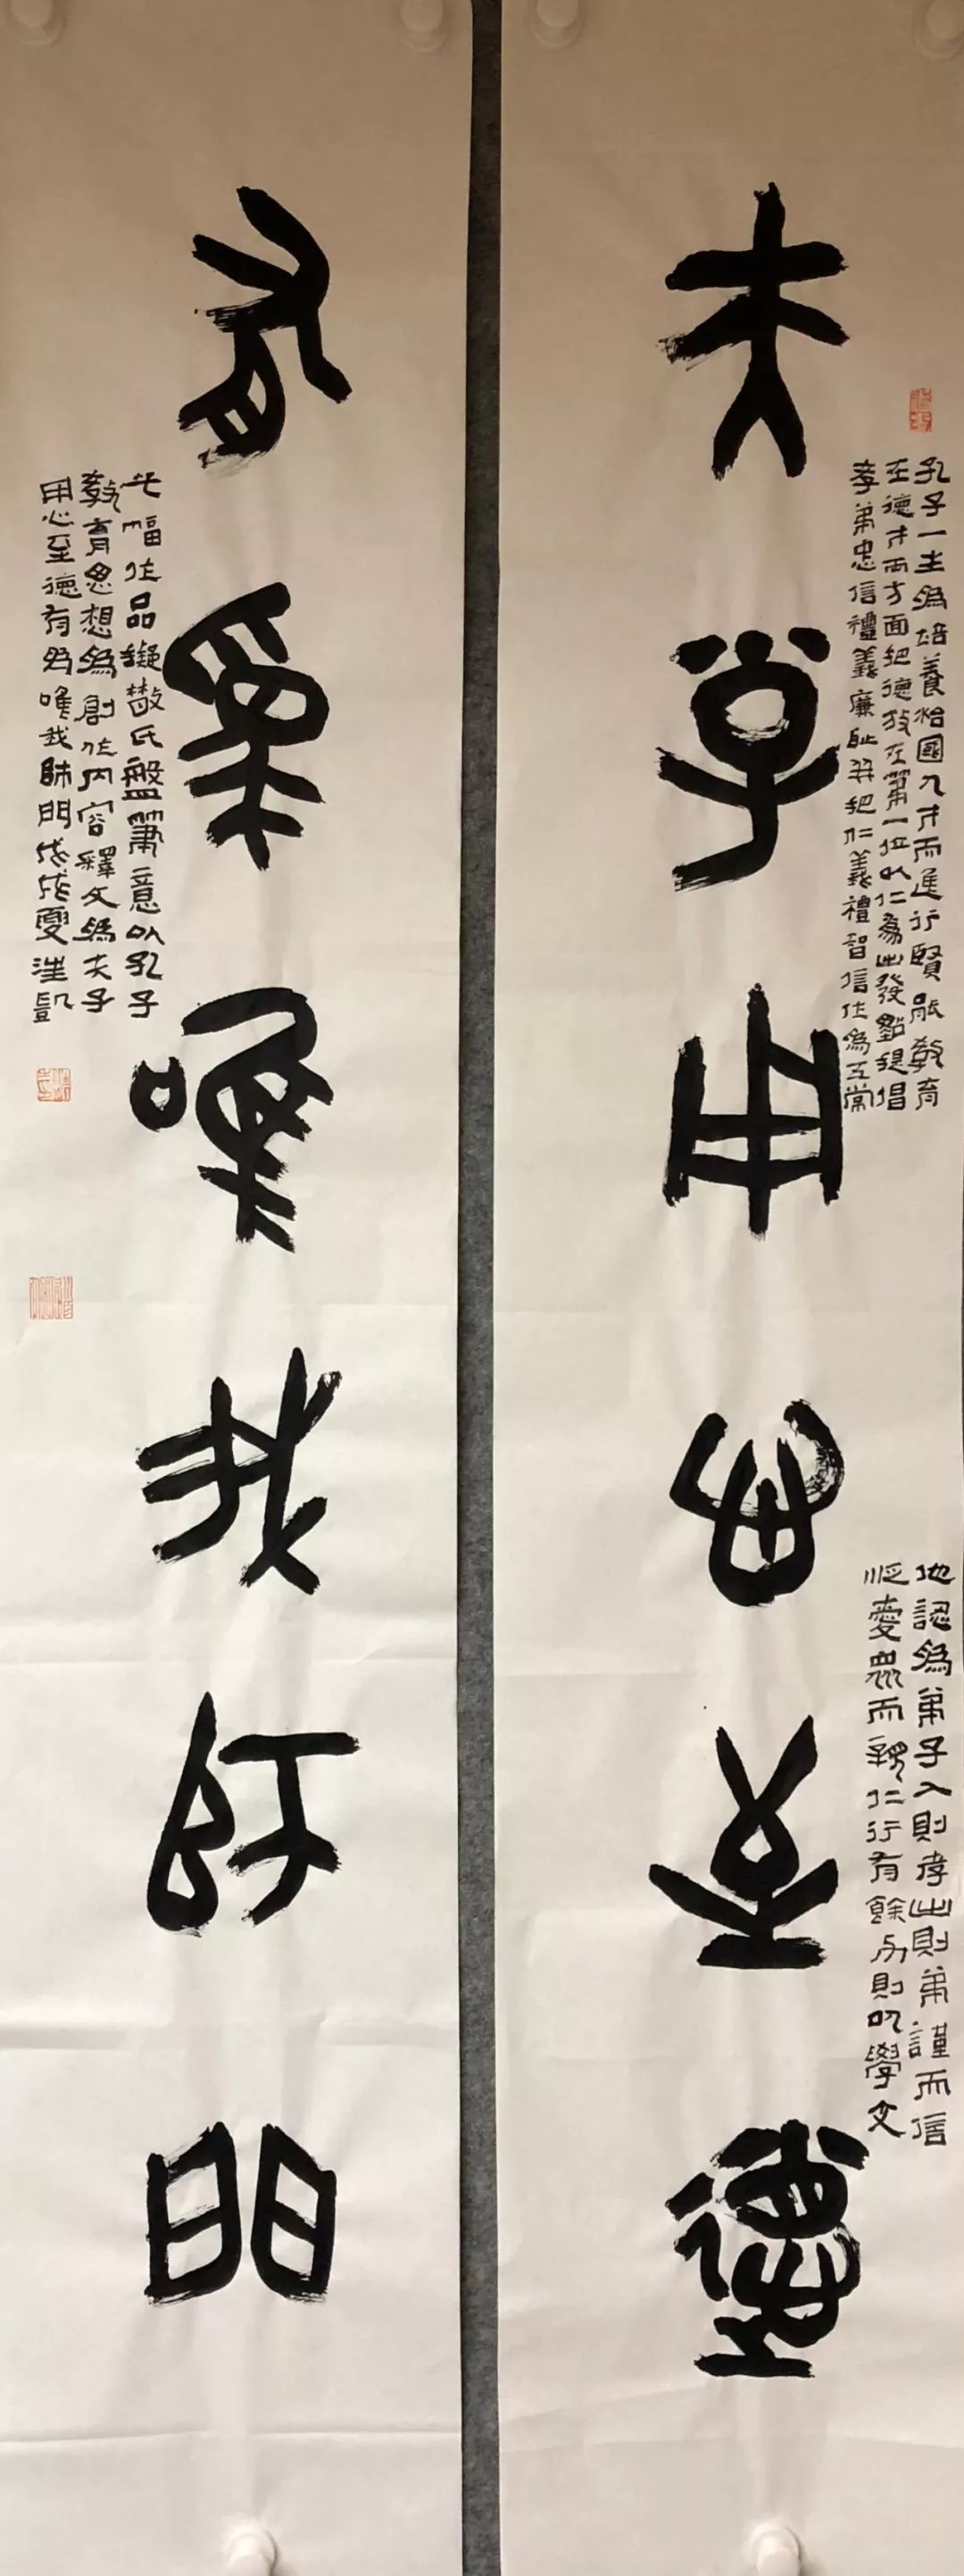 夫子用心至德
孔子一生為培養治國人才而進行賢能教育
在德才兩方面把德放在第一位以仁為出發點提倡
孝弟忠信禮義廉恥並把仁義禮智信作為五常
他認為弟子入則孝出則弟謹而信
汎愛眾而親仁行有餘力則以學文
有為唯我師門
此幅作品擬散氏盤筆意以孔子
教育思想為創作內容釋文為夫子
用心至德有為唯我師門戊戌夏